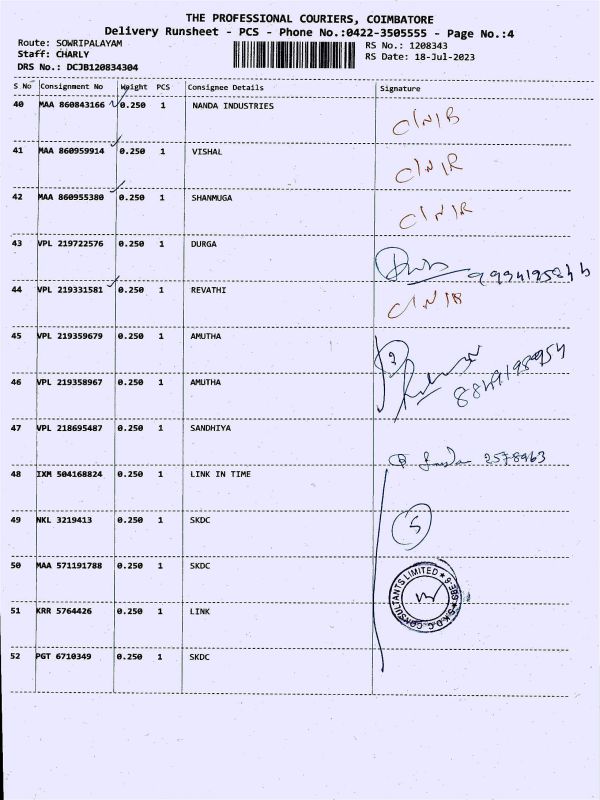 THE PROFESSIONAL COURIERS, COIMBATORE
Delivery Runsheet - PCS - Phone No.:0422-3505555 - Page No.:4
Route: SOWRIPALAYAM RS No.: 1208343
Staff: CHARLY RS Date: 18-Jul-2023
DRS No.: DCJB120834304
S No Consignment No Weight PCS Consignee Details Signature
40 MAA 860843166 0.250 1 NANDA INDUSTRIES
41 MAA 860959914 0.250 1 VISHAL C/N/R
42 MAA 860955380 0.250 1 SHANMUGA C/N/R
43 VPL 219722576 0.250 1 DURGA
44 VPL 219331581 0.250 1 REVATHI
45 VPL 219359679 0.250 1 AMUTHA
46 VPL 219358967 0.250 1 AMUTHA
47 VPL 218695487 0.250 1 SANDHIYA 2578963
48 IXM 504168824 0.250 1 LINK IN TIME
49 NKL 3219413 0.250 1 SKDC 5
50 MAA 571191788 0.250 1 SKDC
S.K.D.C. CONSULTANTS LIMITED
51 KRR 5764426 0.250 1 LINK
52 PGT 6710349 0.250 1 SKDC